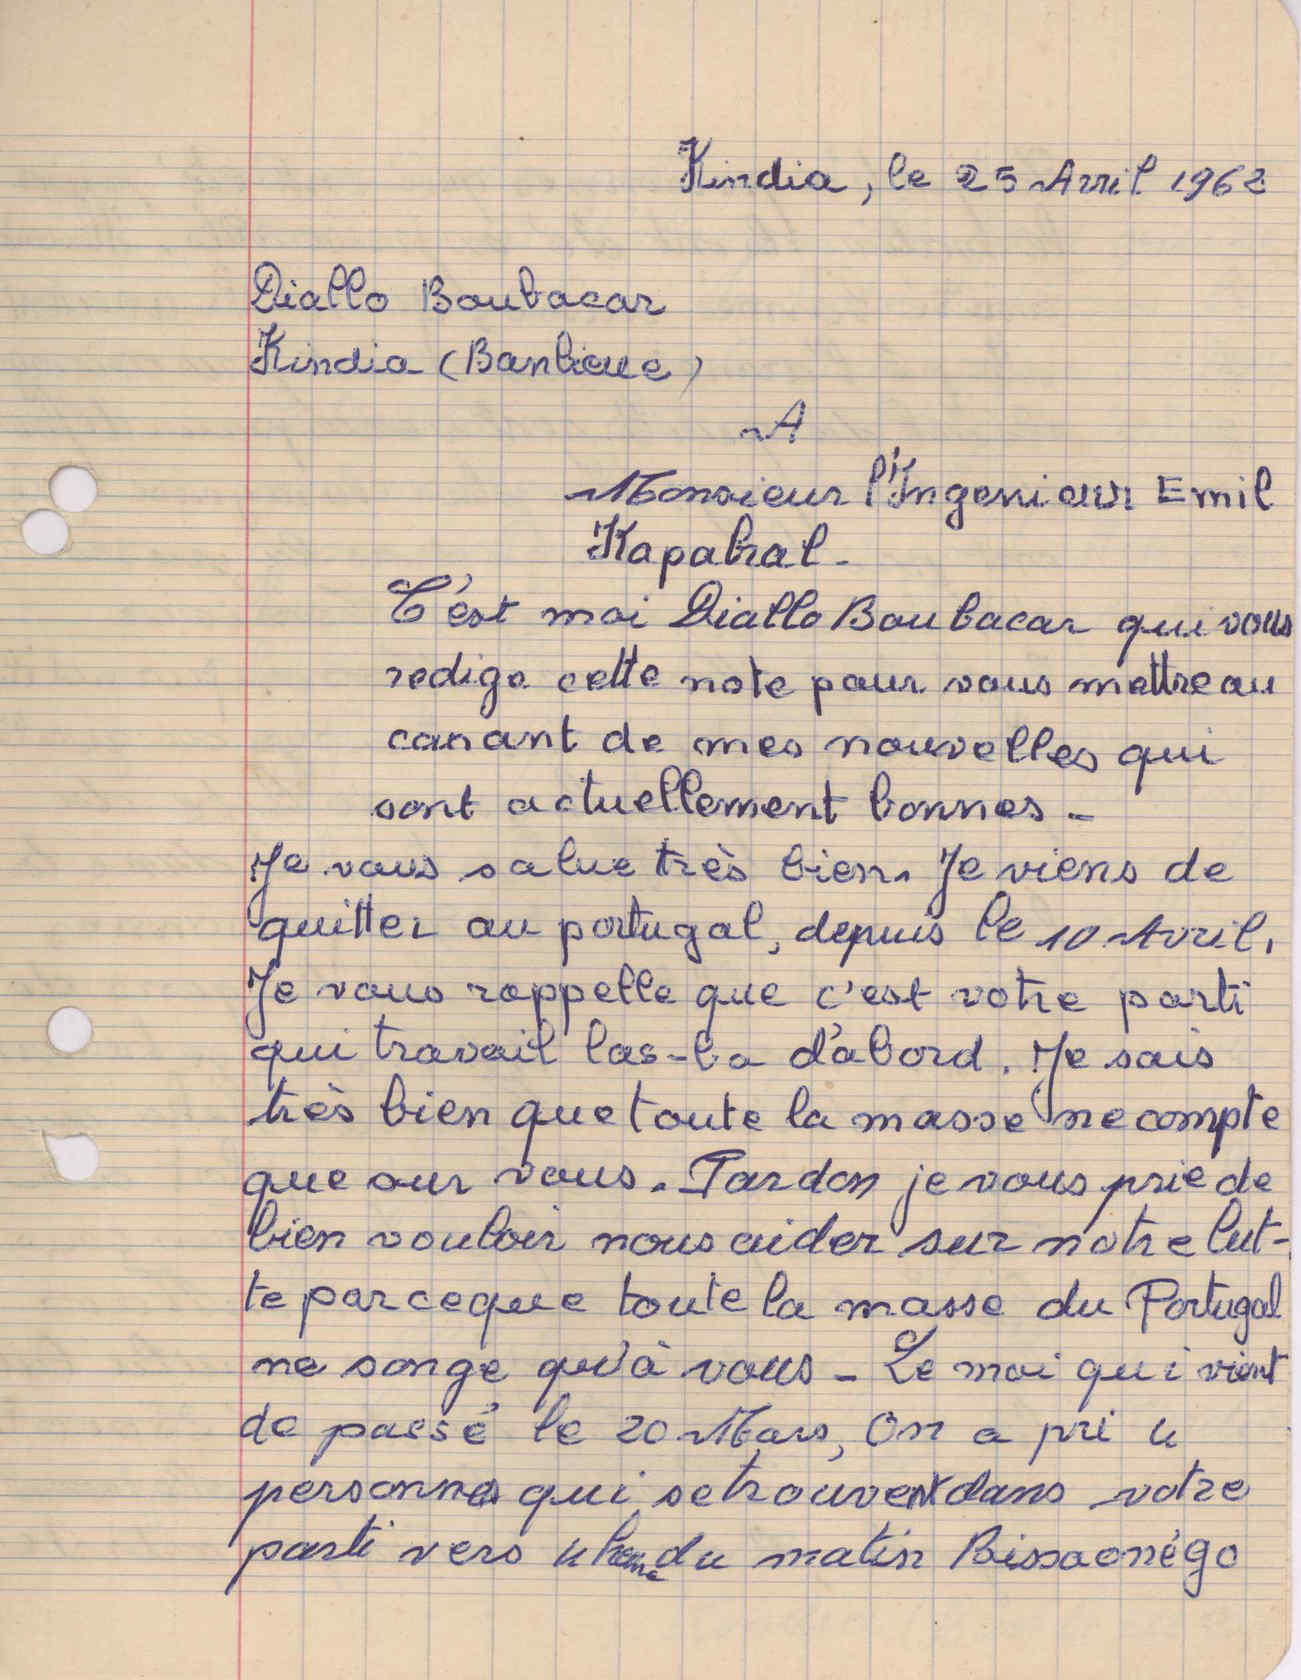 Kindia, le 25 Avril 1962
Diallo Boubacar
Kindia (Banlieue)
A
Monsieur l'Ingenieur Emil
Kapabral -
C'est moi Diallo Boubacar qui vous
redige cette note pour vous mettre au
canant de mes nouvelles qui
sont actuellement bonnes -
Je vous salue très bien. Je viens de
quitter au portugal, depuis le 10 Avril.
Je vous rappelle que c'est votre parti
qui travail las-ba d'abord. Je sais
très bien que toute la masse ne compte
que sur vous. Pardon je vous prie de
bien vouloir nous aider sur notre lut-
te parceque toute la masse du Portugal
ne songe qu'à vous - Le moi qui vient
de passé le 20 Mars, On a pri 4
personnes qui se trouvent dans votre
parti vers 4 heure du matin Bissaonégo